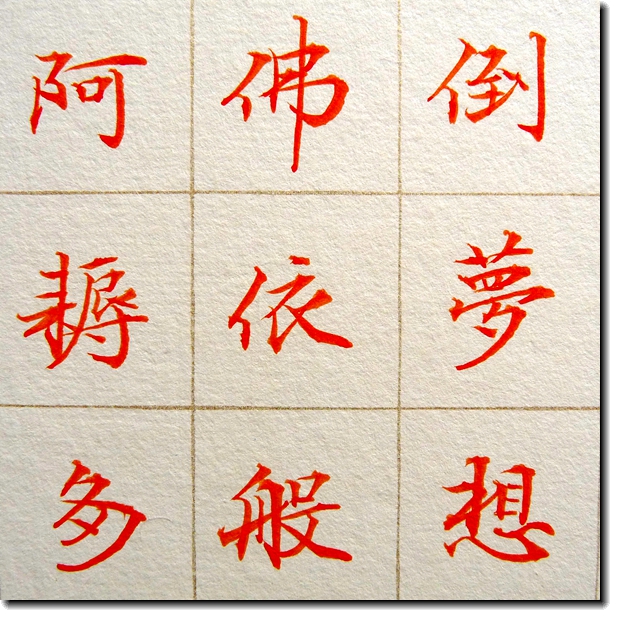 倒夢想
佛依般
阿耨多